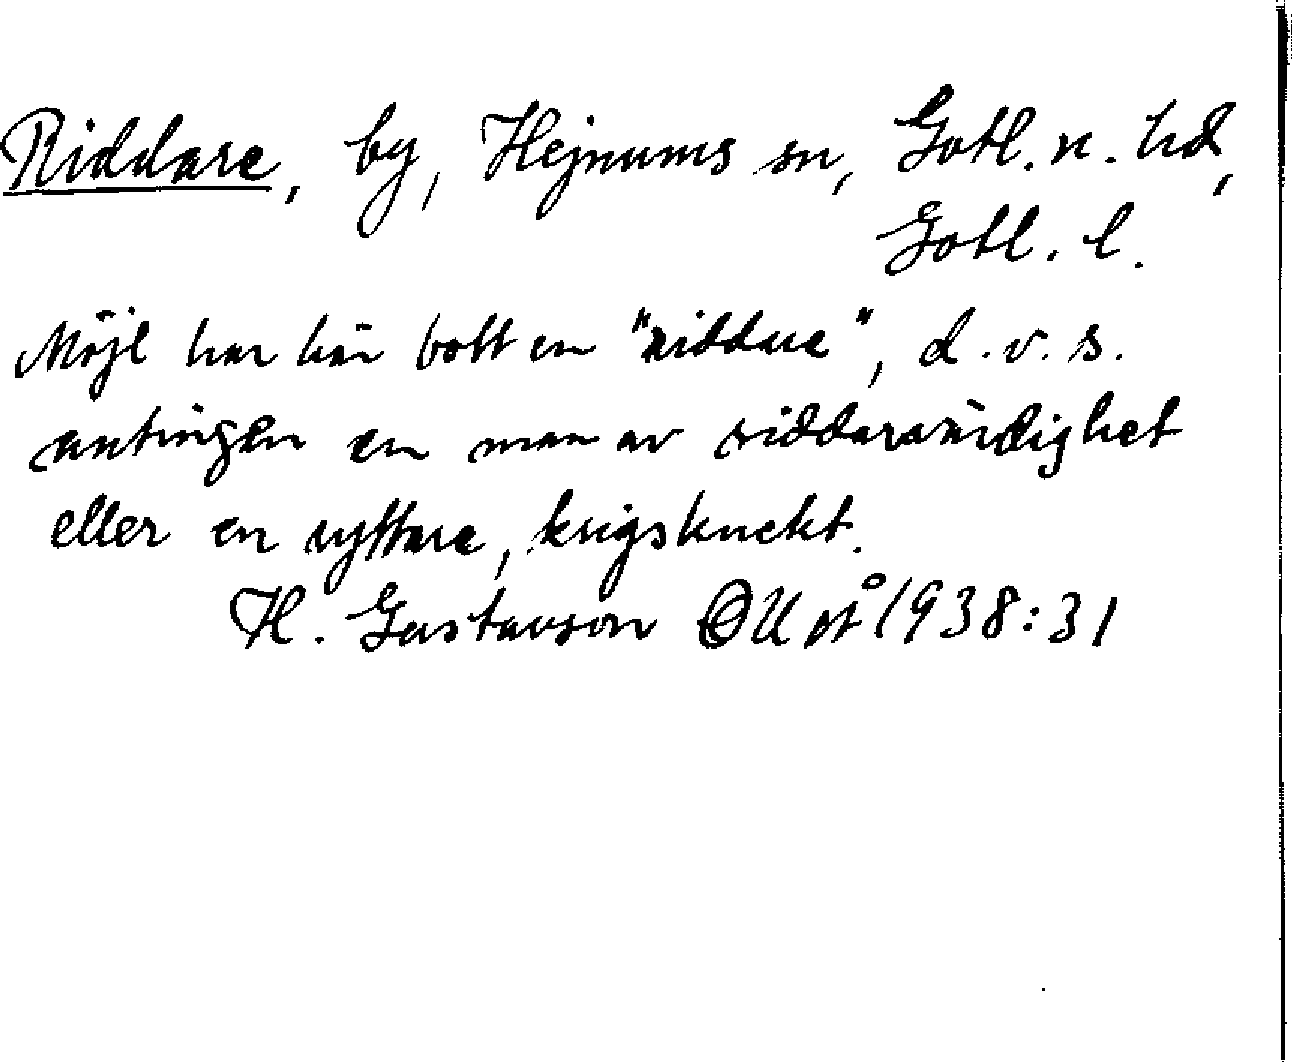 Riddare, by, Hejnums sn, Gotl. n. hd,
Gotl. l.
Möjl har här bott en "riddare", d.v.s.
antingen en man av riddarvärdighet
eller en ryttare, krigsknekt.
H. Gustavson OUÅ 1938:31